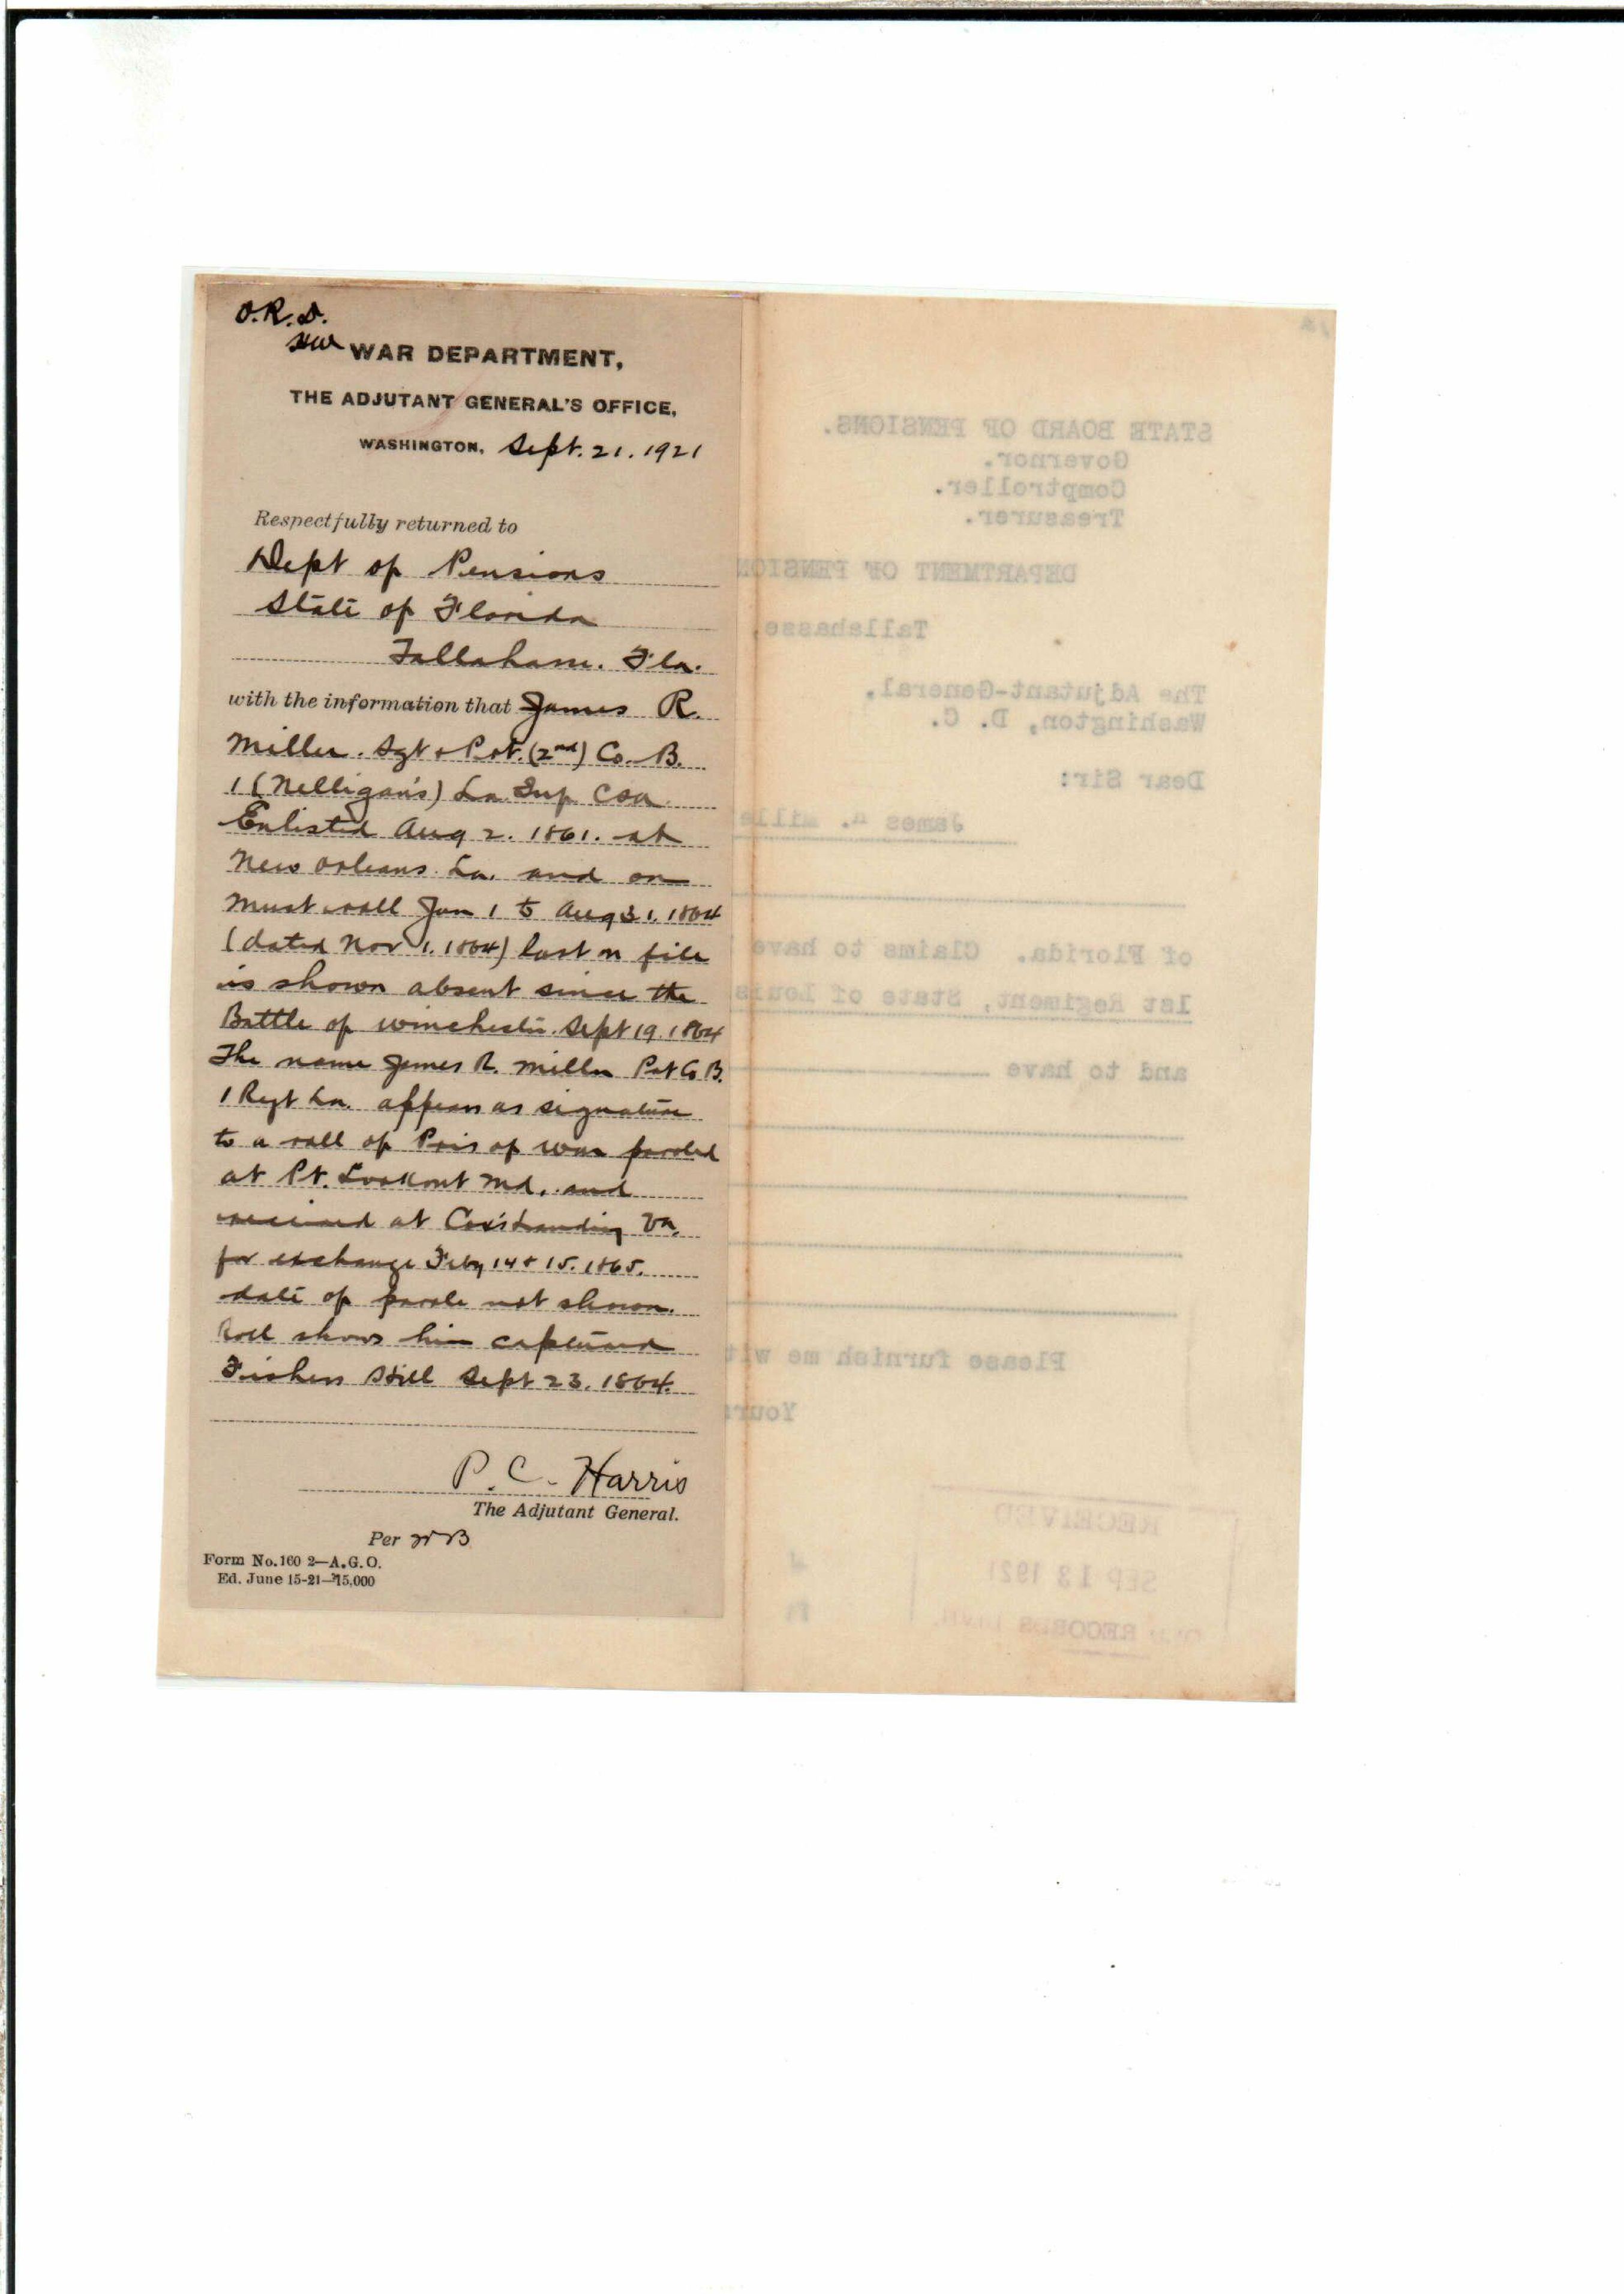 O.R.D.
WAR DEPARTMENT,
THE ADJUTANT GENERAL'S OFFICE,
WASHINGTON, Sept. 21. 1921
Respectfully returned to
Dept of Pensions
State of Florida
Tallahasse. Fla.
with the information that James R.
Miller. Sgt & Pvt. (2nd) Co. B.
1 (Nelligan's) La. Inf. CSA
Enlisted Aug 2. 1861. at
New Orleans. La. and on
Must roll Jan 1 to Aug 31. 1864
(dated Nov 1. 1864) last on file
is shown absent since the
Battle of Winchester. Sept 19. 1864
The name James R. Miller Pvt Co B.
1 Regt La. appears as signature
to a roll of Pris of war paroled
at Pt. Lookout Md. and
received at Cox's Landing Va.
for exchange Feby 14 & 15. 1865.
date of parole not shown.
Roll shows him captured
Fishers Hill Sept 23. 1864.
P. C. Harris
The Adjutant General.
Per WB
Form No. 160 2—A.G.O.
Ed. June 15-21—15,000
STATE BOARD OF PENSIONS.
Governor.
Comptroller.
Treasurer.
DEPARTMENT OF PENSION
Tallahasse,
The Adjutant-General,
Washington, D. C.
Dear Sir:
James Mille
of Florida. Claims to have
1st Regiment, State of Louis
and to have
Please furnish me wit
Your
RECEIVED
SEP 13 1921
RECORDS